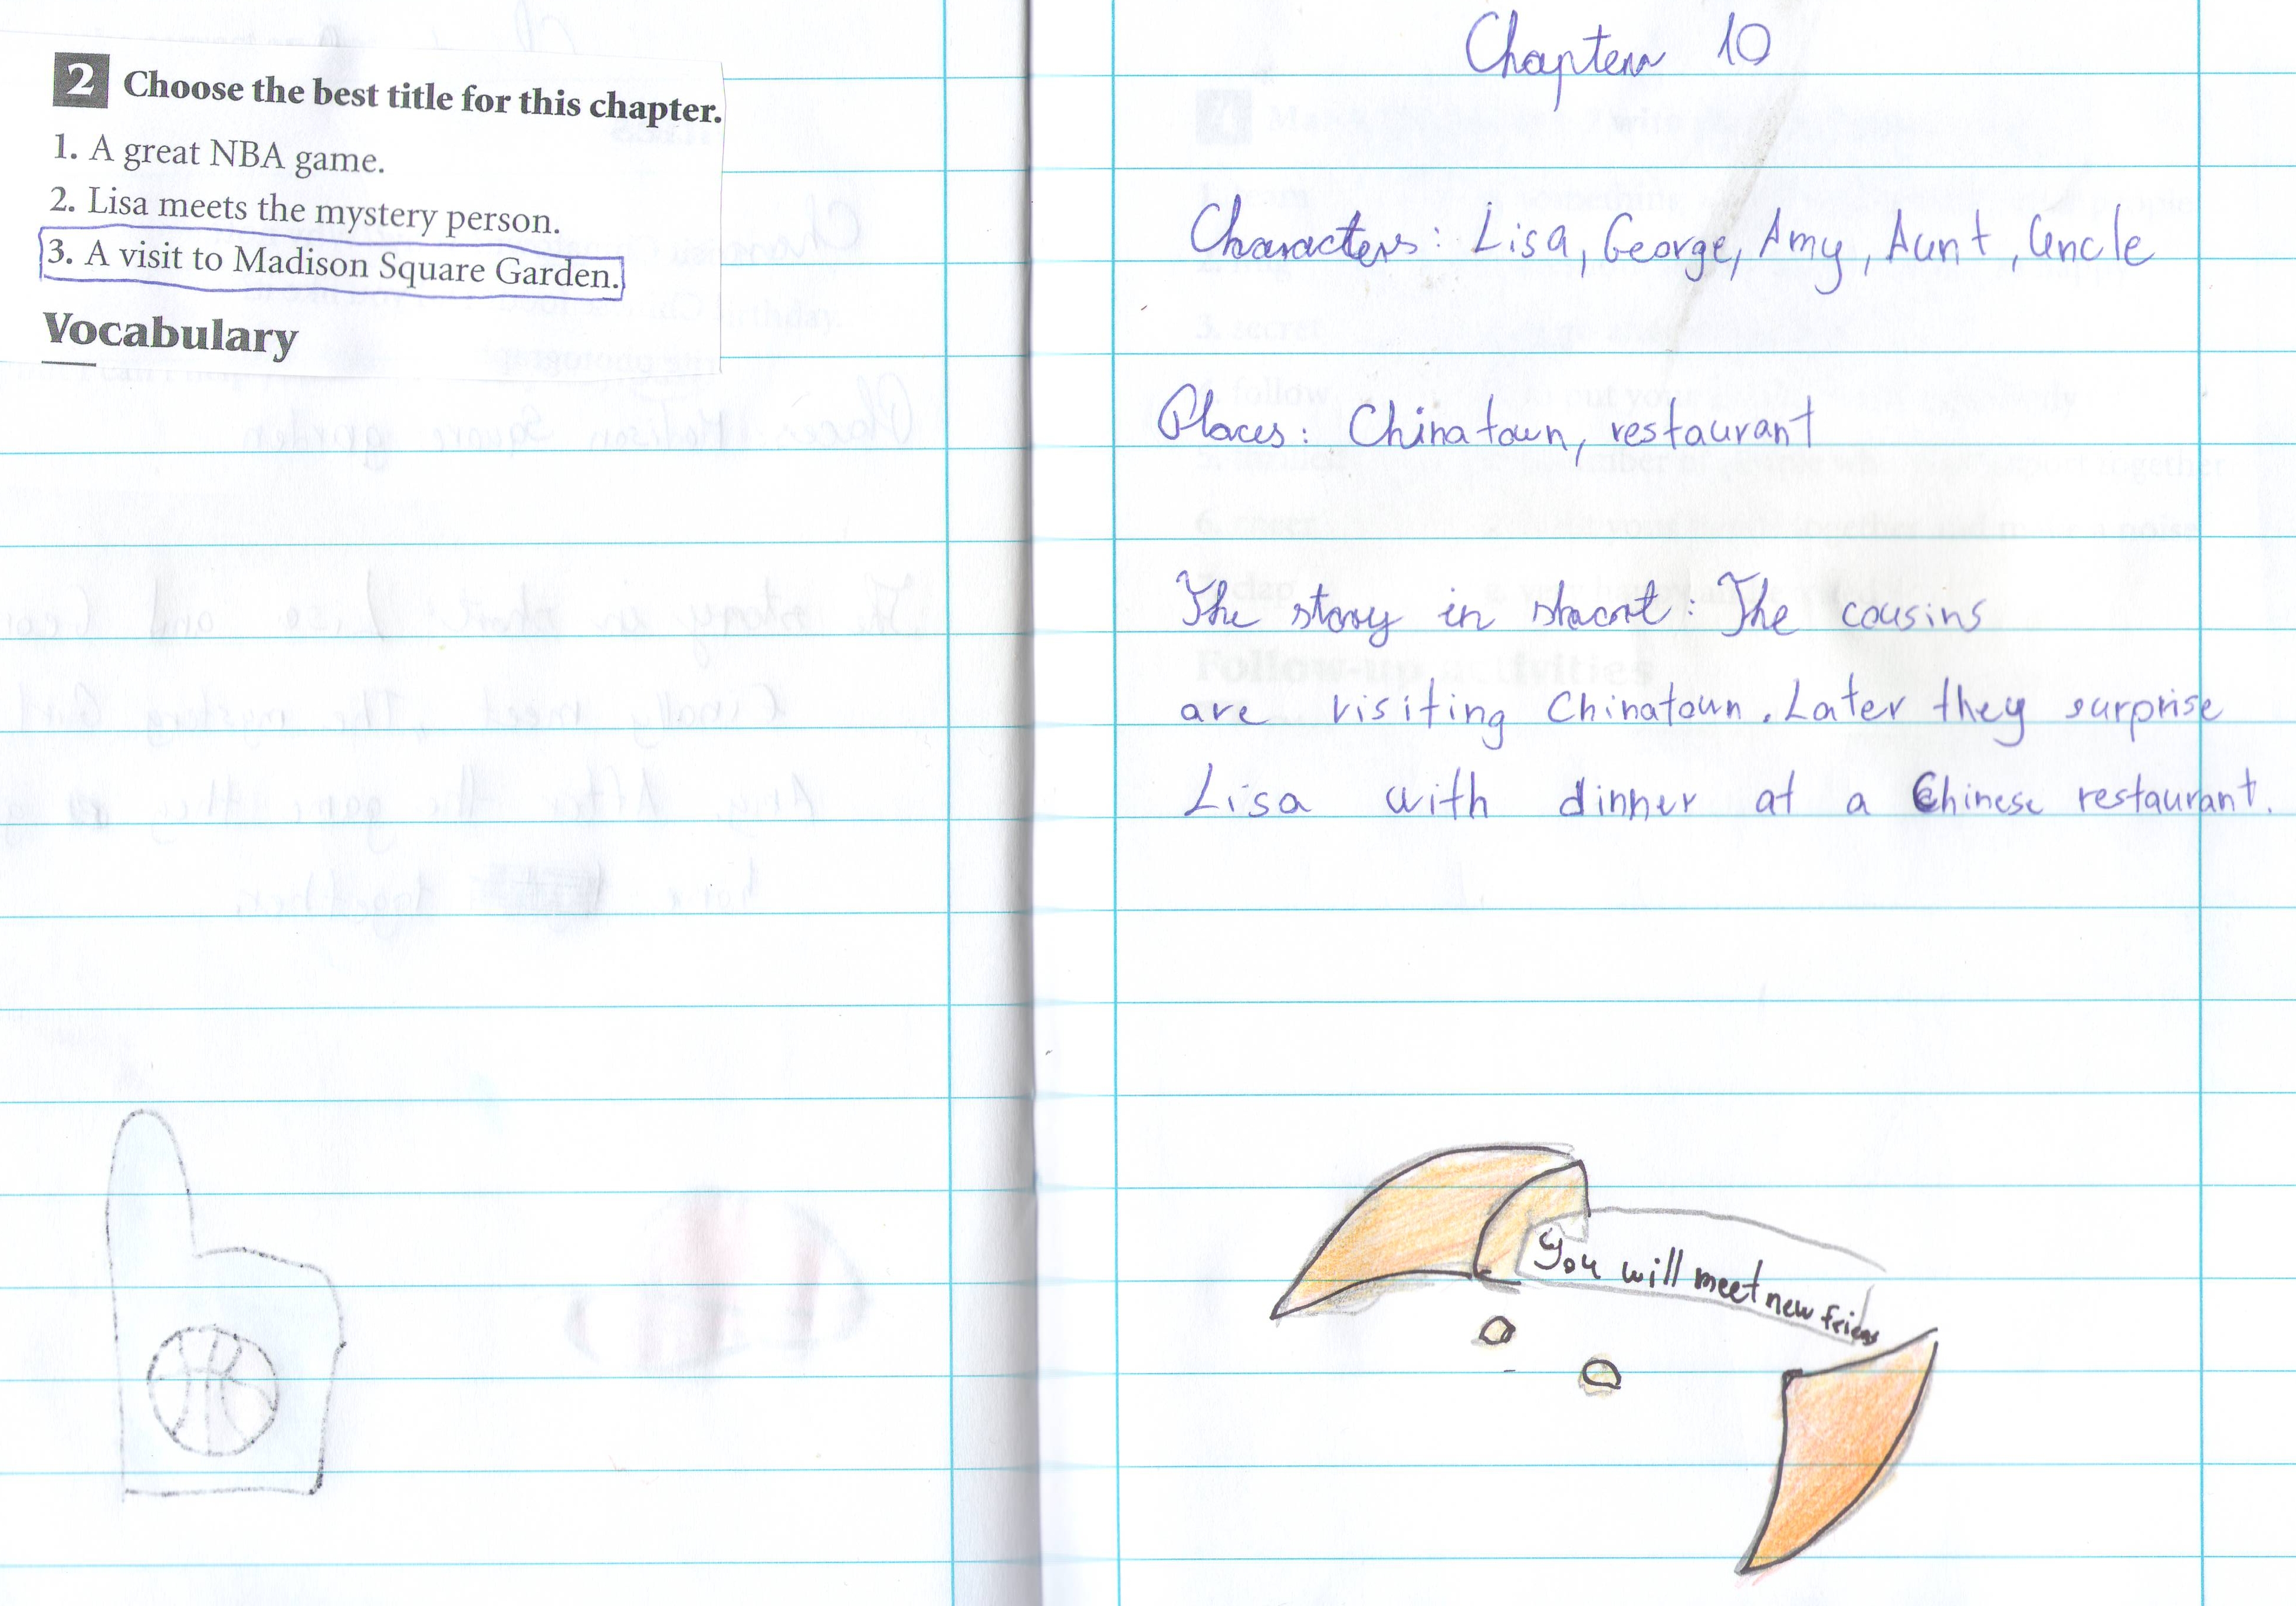 2 Choose the best title for this chapter.
1. A great NBA game.
2. Lisa meets the mystery person.
3. A visit to Madison Square Garden.
Vocabulary
Chapter 10
Characters: Lisa, George, Amy, Aunt, Uncle
Places: Chinatown, restaurant
The story in short: The cousins
are visiting Chinatown. Later they surprise
Lisa with dinner at a Chinese restaurant.
You will meet new